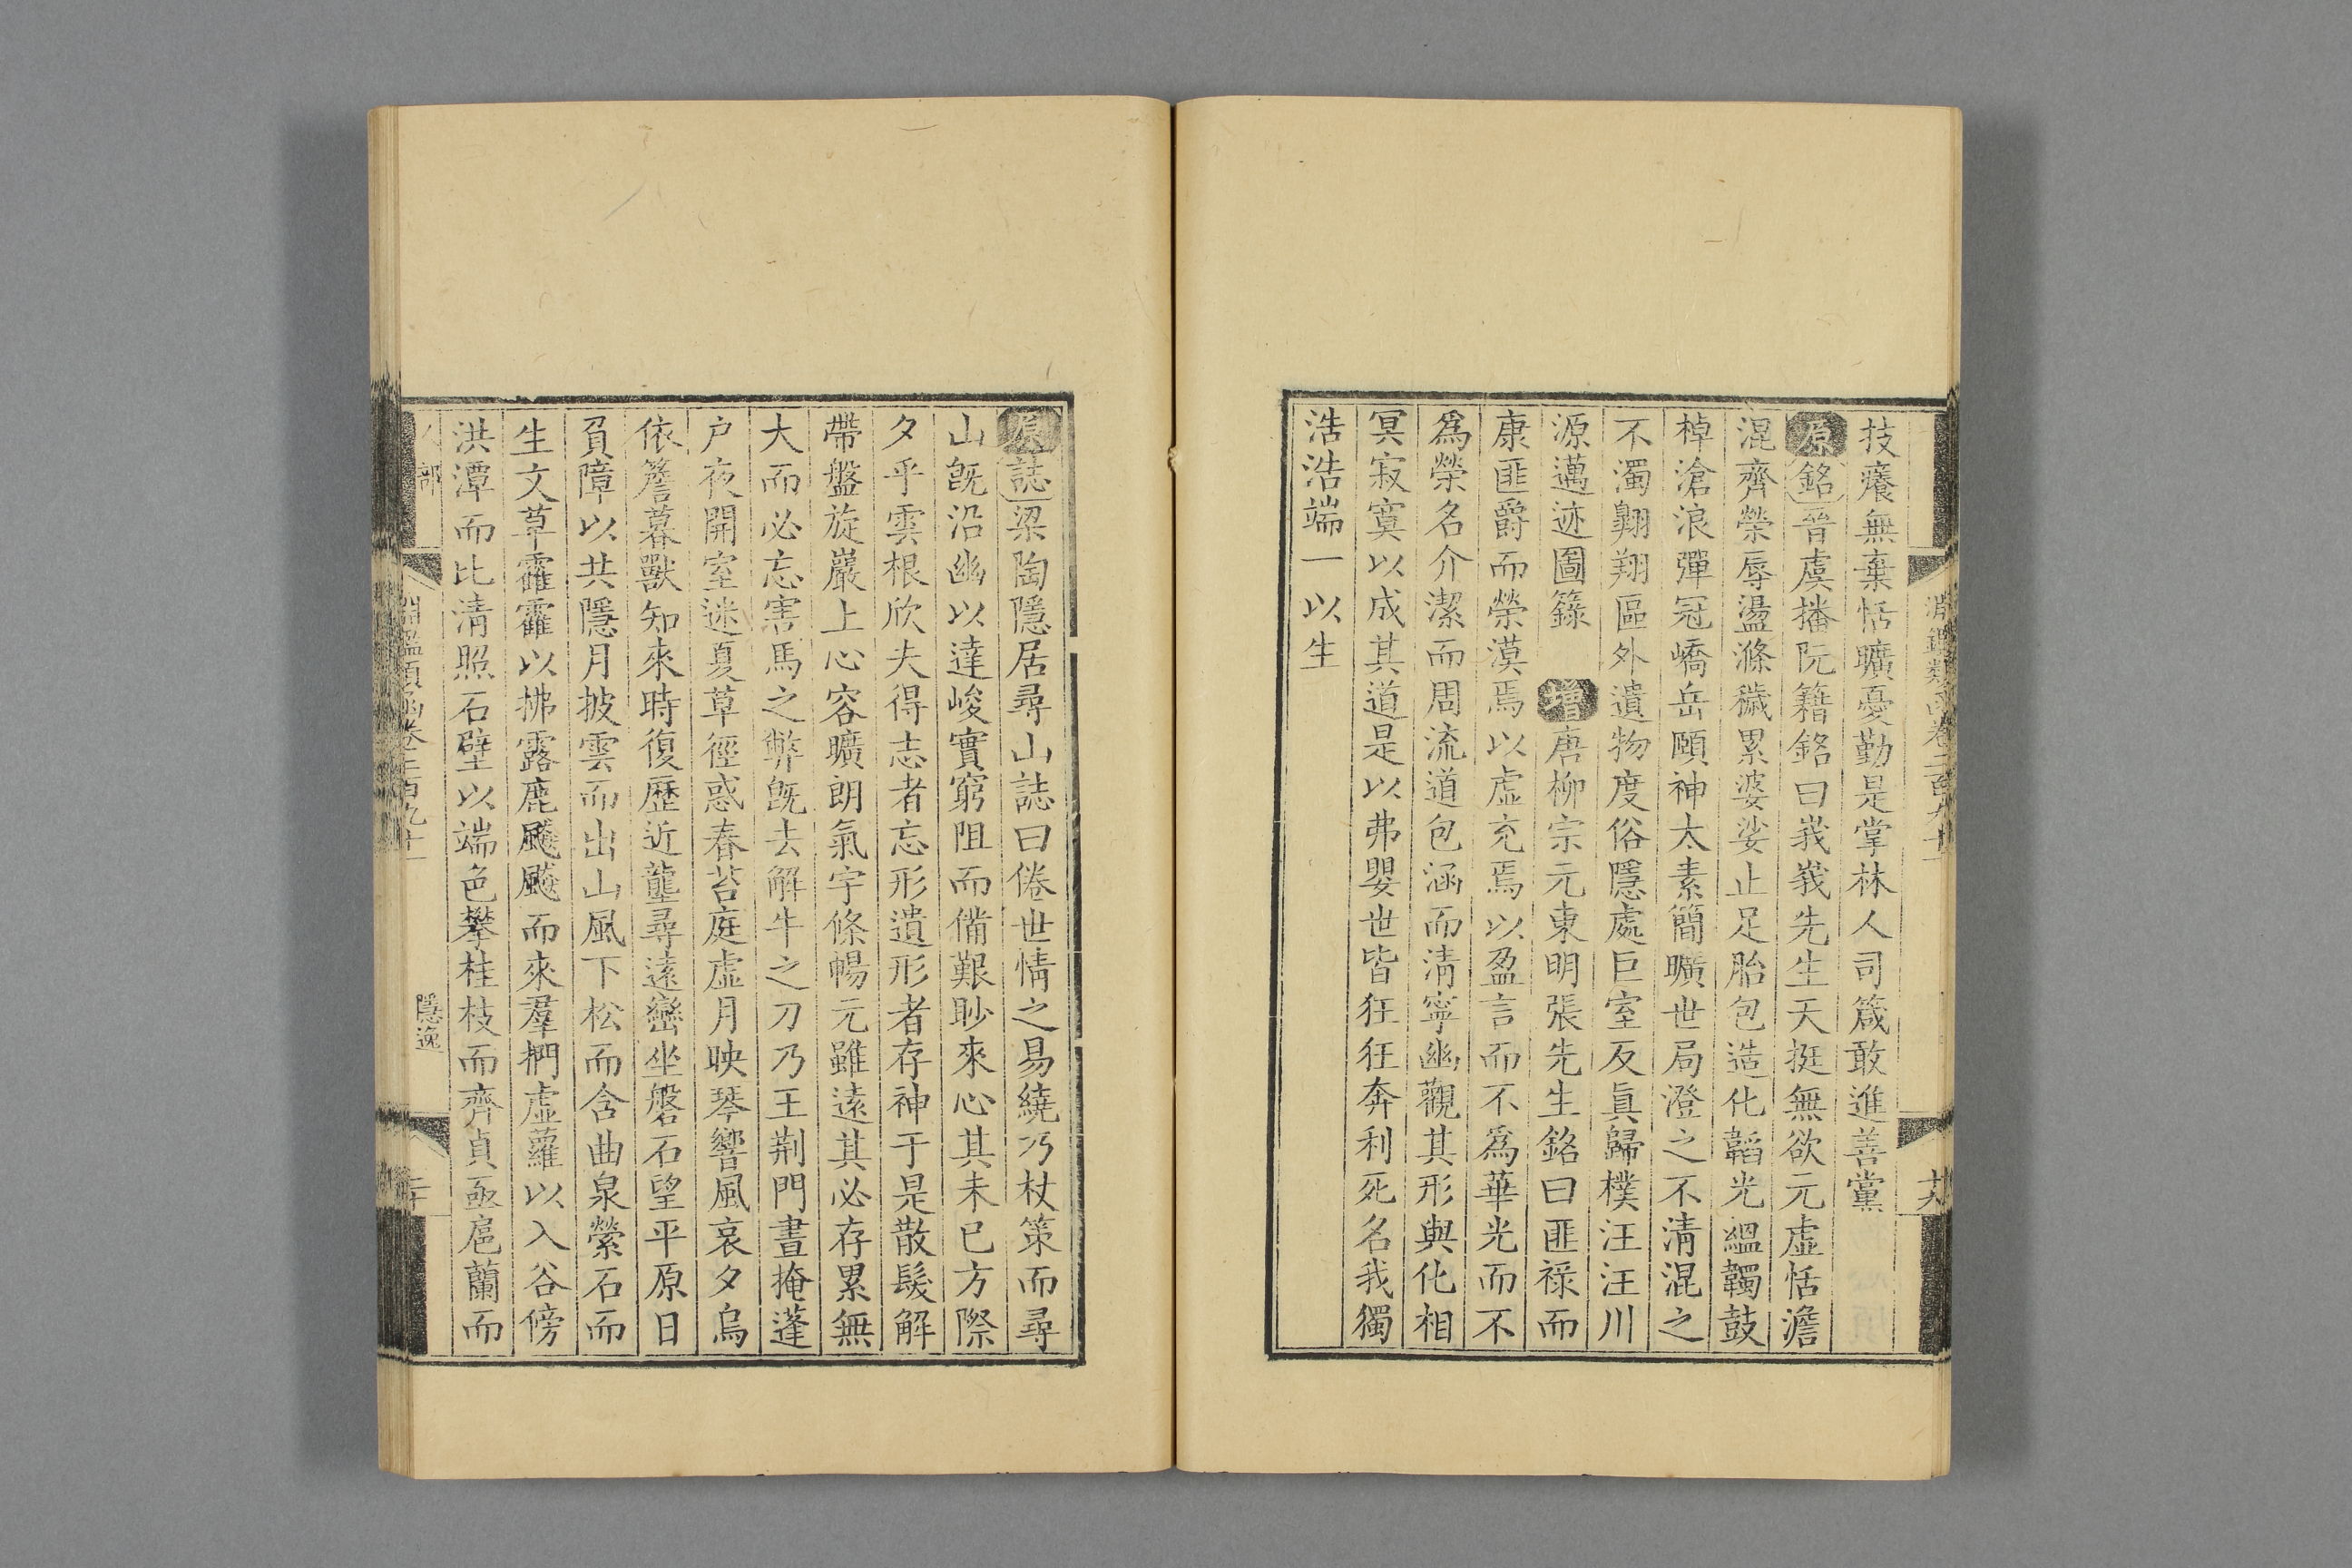 淵鑑類函卷二百九十一
技癢無棄恬曠憂勤是掌林人司箴敢進善黨
原銘晉虞播阮籍銘曰峩峩先生天挺無欲元虛恬澹
混齊榮辱盪滌穢累婆娑止足胎包造化韜光緼韣鼓
棹滄浪彈冠嶠岳頤神太素簡曠世局澄之不清混之
不濁翺翔區外遺物度俗隱處巨室反眞歸樸汪汪川
源邁迹圖籙 增唐柳宗元東明張先生銘曰匪祿而
康匪爵而榮漠焉以虛充焉以盈言而不爲華光而不
爲榮名介潔而周流道包涵而清寧幽觀其形與化相
冥寂寞以成其道是以弗嬰世皆狂狂奔利死名我獨
浩浩端一以生
原誌梁陶隱居尋山誌曰倦世情之易繞乃杖策而尋
山旣沿幽以達峻實窮阻而備艱眇來心其未已方際
夕乎雲根欣夫得志者忘形遺形者存神于是散髮解
帶盤旋巖上心容曠朗氣宇條暢元雖遠其必存累無
大而必忘害馬之弊旣去解牛之刀乃王荆門晝掩蓬
户夜開室迷夏草徑惑春苔庭虛月映琴響風哀夕烏
依簷暮獸知來時復歷近壟尋遠巒坐磐石望平原日
負障以共隱月披雲而出山風下松而含曲泉縈石而
生文草霍霍以拂露鹿飈飈而來羣捫虛蘿以入谷傍
洪潭而比清照石壁以端色攀桂枝而齊貞亟扈蘭而
人部 淵鑑類函卷二百九十一 隱逸